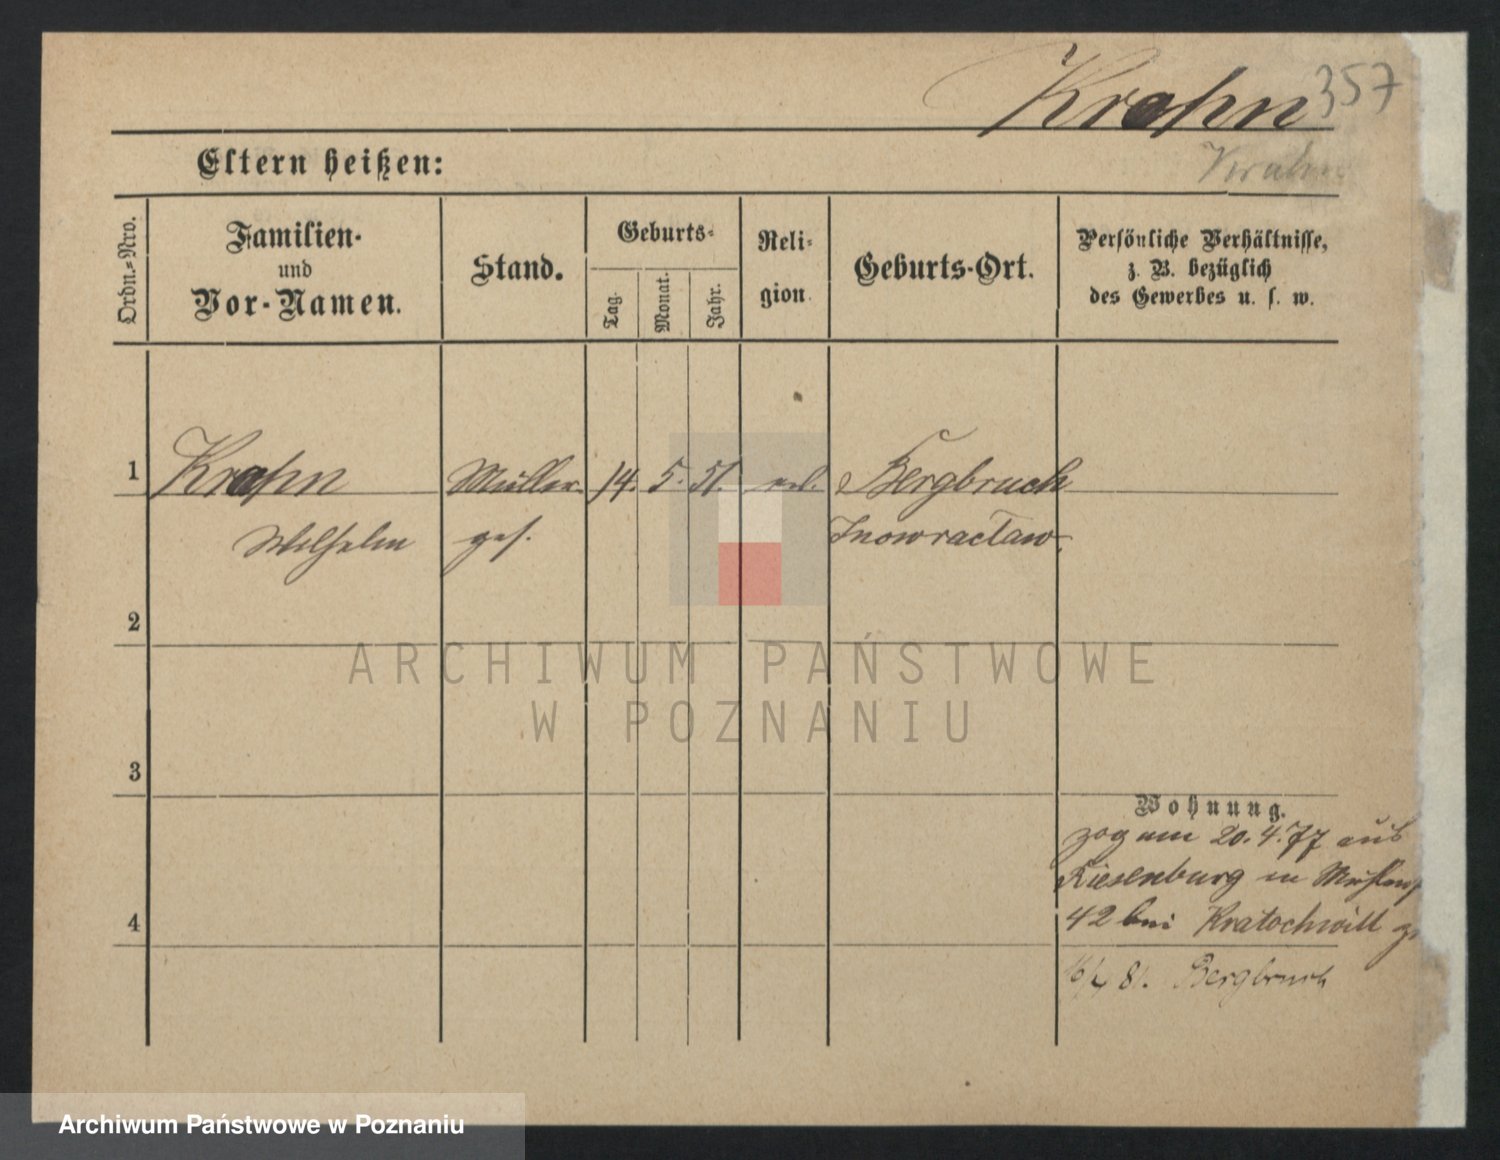 Krahn 357
Krahn
Eltern heißen:
Ordn.-Nro.
Familien-
und
Vor-Namen.
Stand.
Geburts-
Tag.
Monat.
Jahr.
Reli-
gion.
Geburts-Ort.
Persönliche Verhältnisse,
z. B. bezüglich
des Gewerbes u. s. w.
1 Krahn Müller 14. 5. 51. Bergbruch
Wilhelm ges. Inowracław
2
ARCHIWUM PAŃSTWOWE
W POZNANIU
3
Wohnung.
zog am 20.4.77 aus
Riesenburg in
42 bei Kratochwill
4
81. Bergbruch
Archiwum Państwowe w Poznaniu